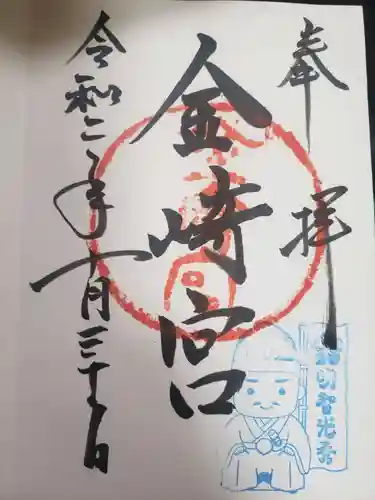 奉拝
金崎宮
令和二年十月三十日
明智光秀